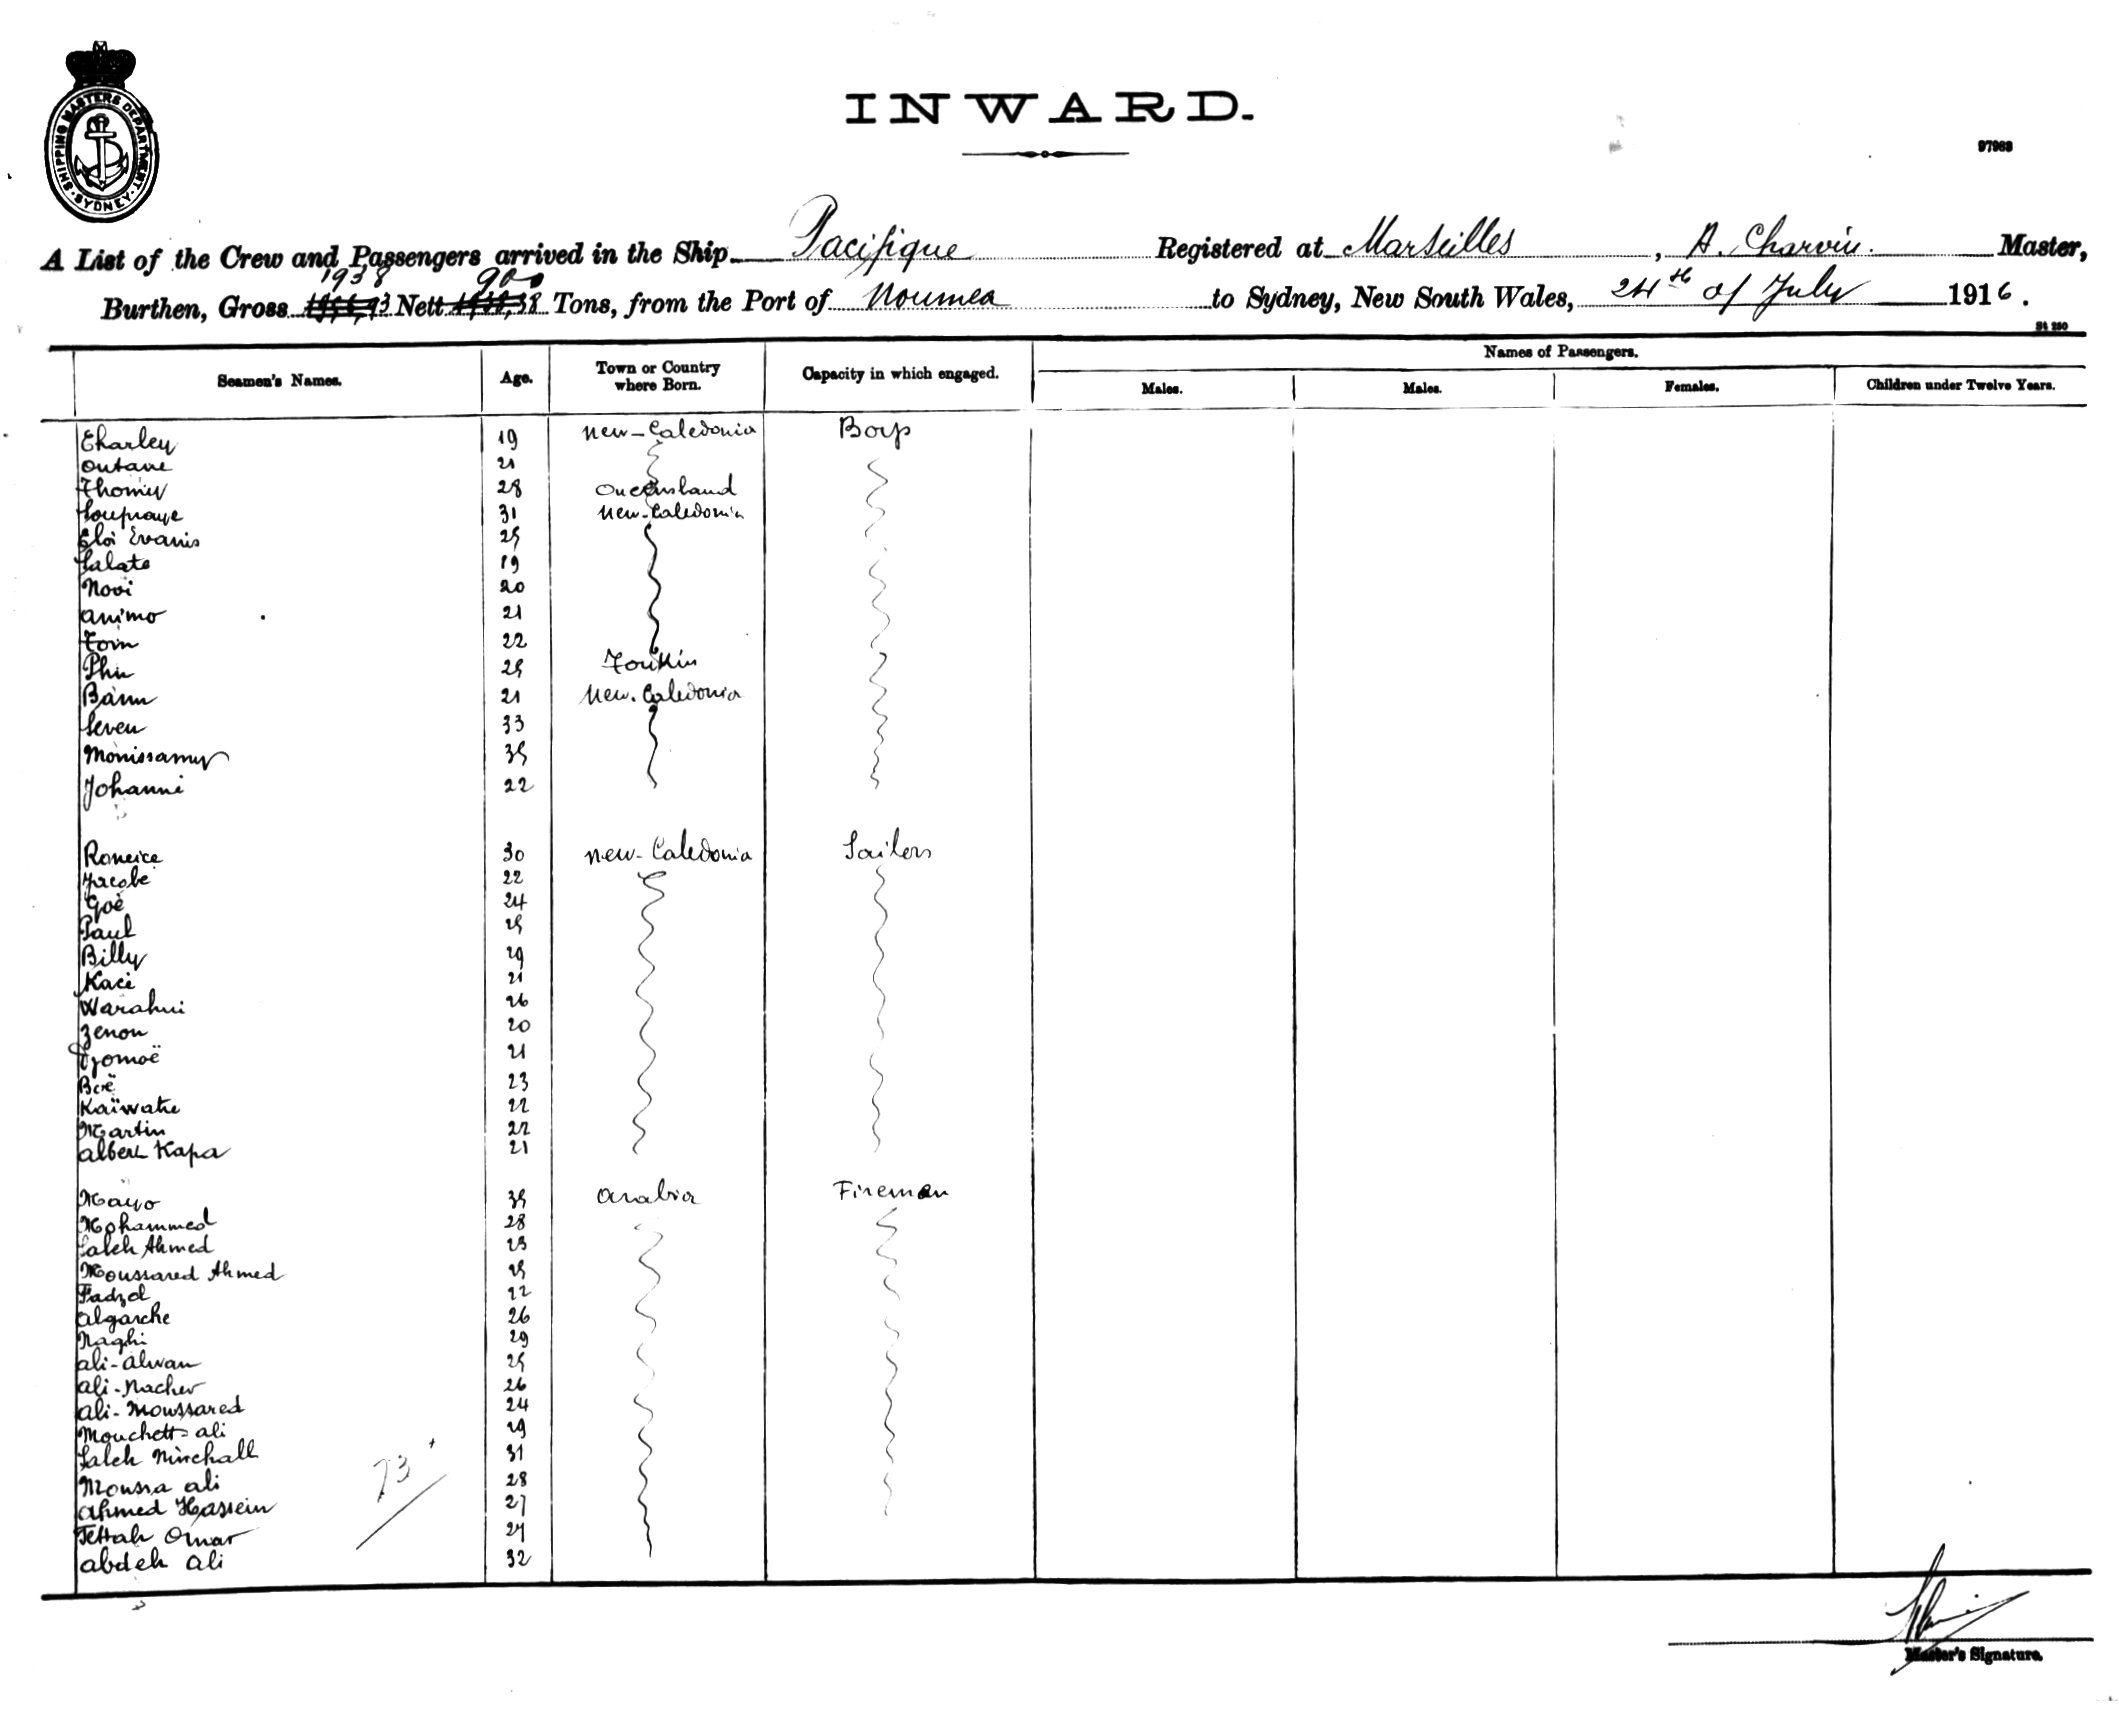 SHIPPING MASTERS DEPARTMENT. SYDNEY.
INWARD.
97963
A List of the Crew and Passengers arrived in the Ship Pacifique Registered at Marseilles, A. Charvin Master,
1938 900
Burthen, Gross Nett Tons, from the Port of Noumea to Sydney, New South Wales, 24th of July 1916.
St 250
Names of Passengers.
Seamen's Names. Age. Town or Country where Born. Capacity in which engaged. Males. Males. Females. Children under Twelve Years.
Charley 19 New-Caledonia Boys
Outane 21
Thomy 28 Queensland
Soupraye 31 New-Caledonia
Eloi Evanis 25
Salato 19
Novi 20
Animo 21
Tom 22
Phu 25 Tonkin
Banu 21 New.Caledonia
Seven 33
Monissamy 35
Johanni 22
Roneice 30 New-Caledonia Sailors
Jacobe 22
Goè 24
Paul 25
Billy 29
Kacé 21
Warahui 26
Zenon 20
Djomoë 21
Boë 23
Kaïwake 22
Martin 22
Albert Kapa 21
Mayo 35 Arabia Fireman
Mohammed 28
Saleh Ahmed 23
Moussared Ahmed 25
Fadzel 22
Algarche 26
Naghi 29
Ali-Alwan 25
Ali-Nacher 26
Ali-Moussared 24
Mouchett-Ali 29
Saleh Minchall 31
Moussa Ali 28
Ahmed Hassein 27
Tettah Omar 27
Abdeh Ali 32
73
Master's Signature.